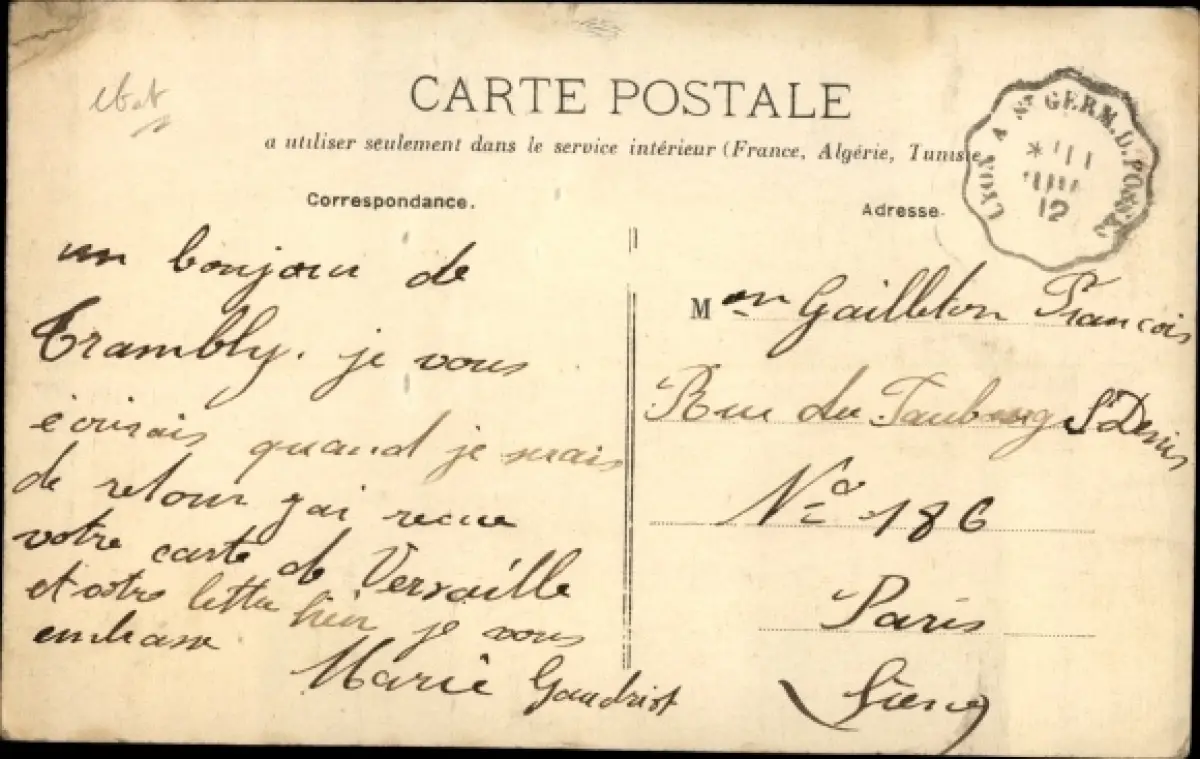 ebat
CARTE POSTALE
a utiliser seulement dans le service intérieur (France, Algérie, Tunisie
LYON A ST GERM. D. FOSSÉS
12
Correspondance.
Adresse.
un bonjour de
Trambly. je vous
écrirais quand je serais
de retour j'ai recue
votre carte de Versaille
et votre lettre hier je vous
embrasse
Marie Gaudrist
Mon Gailleton François
Rue du Faubourg St Denis
No 186
Paris